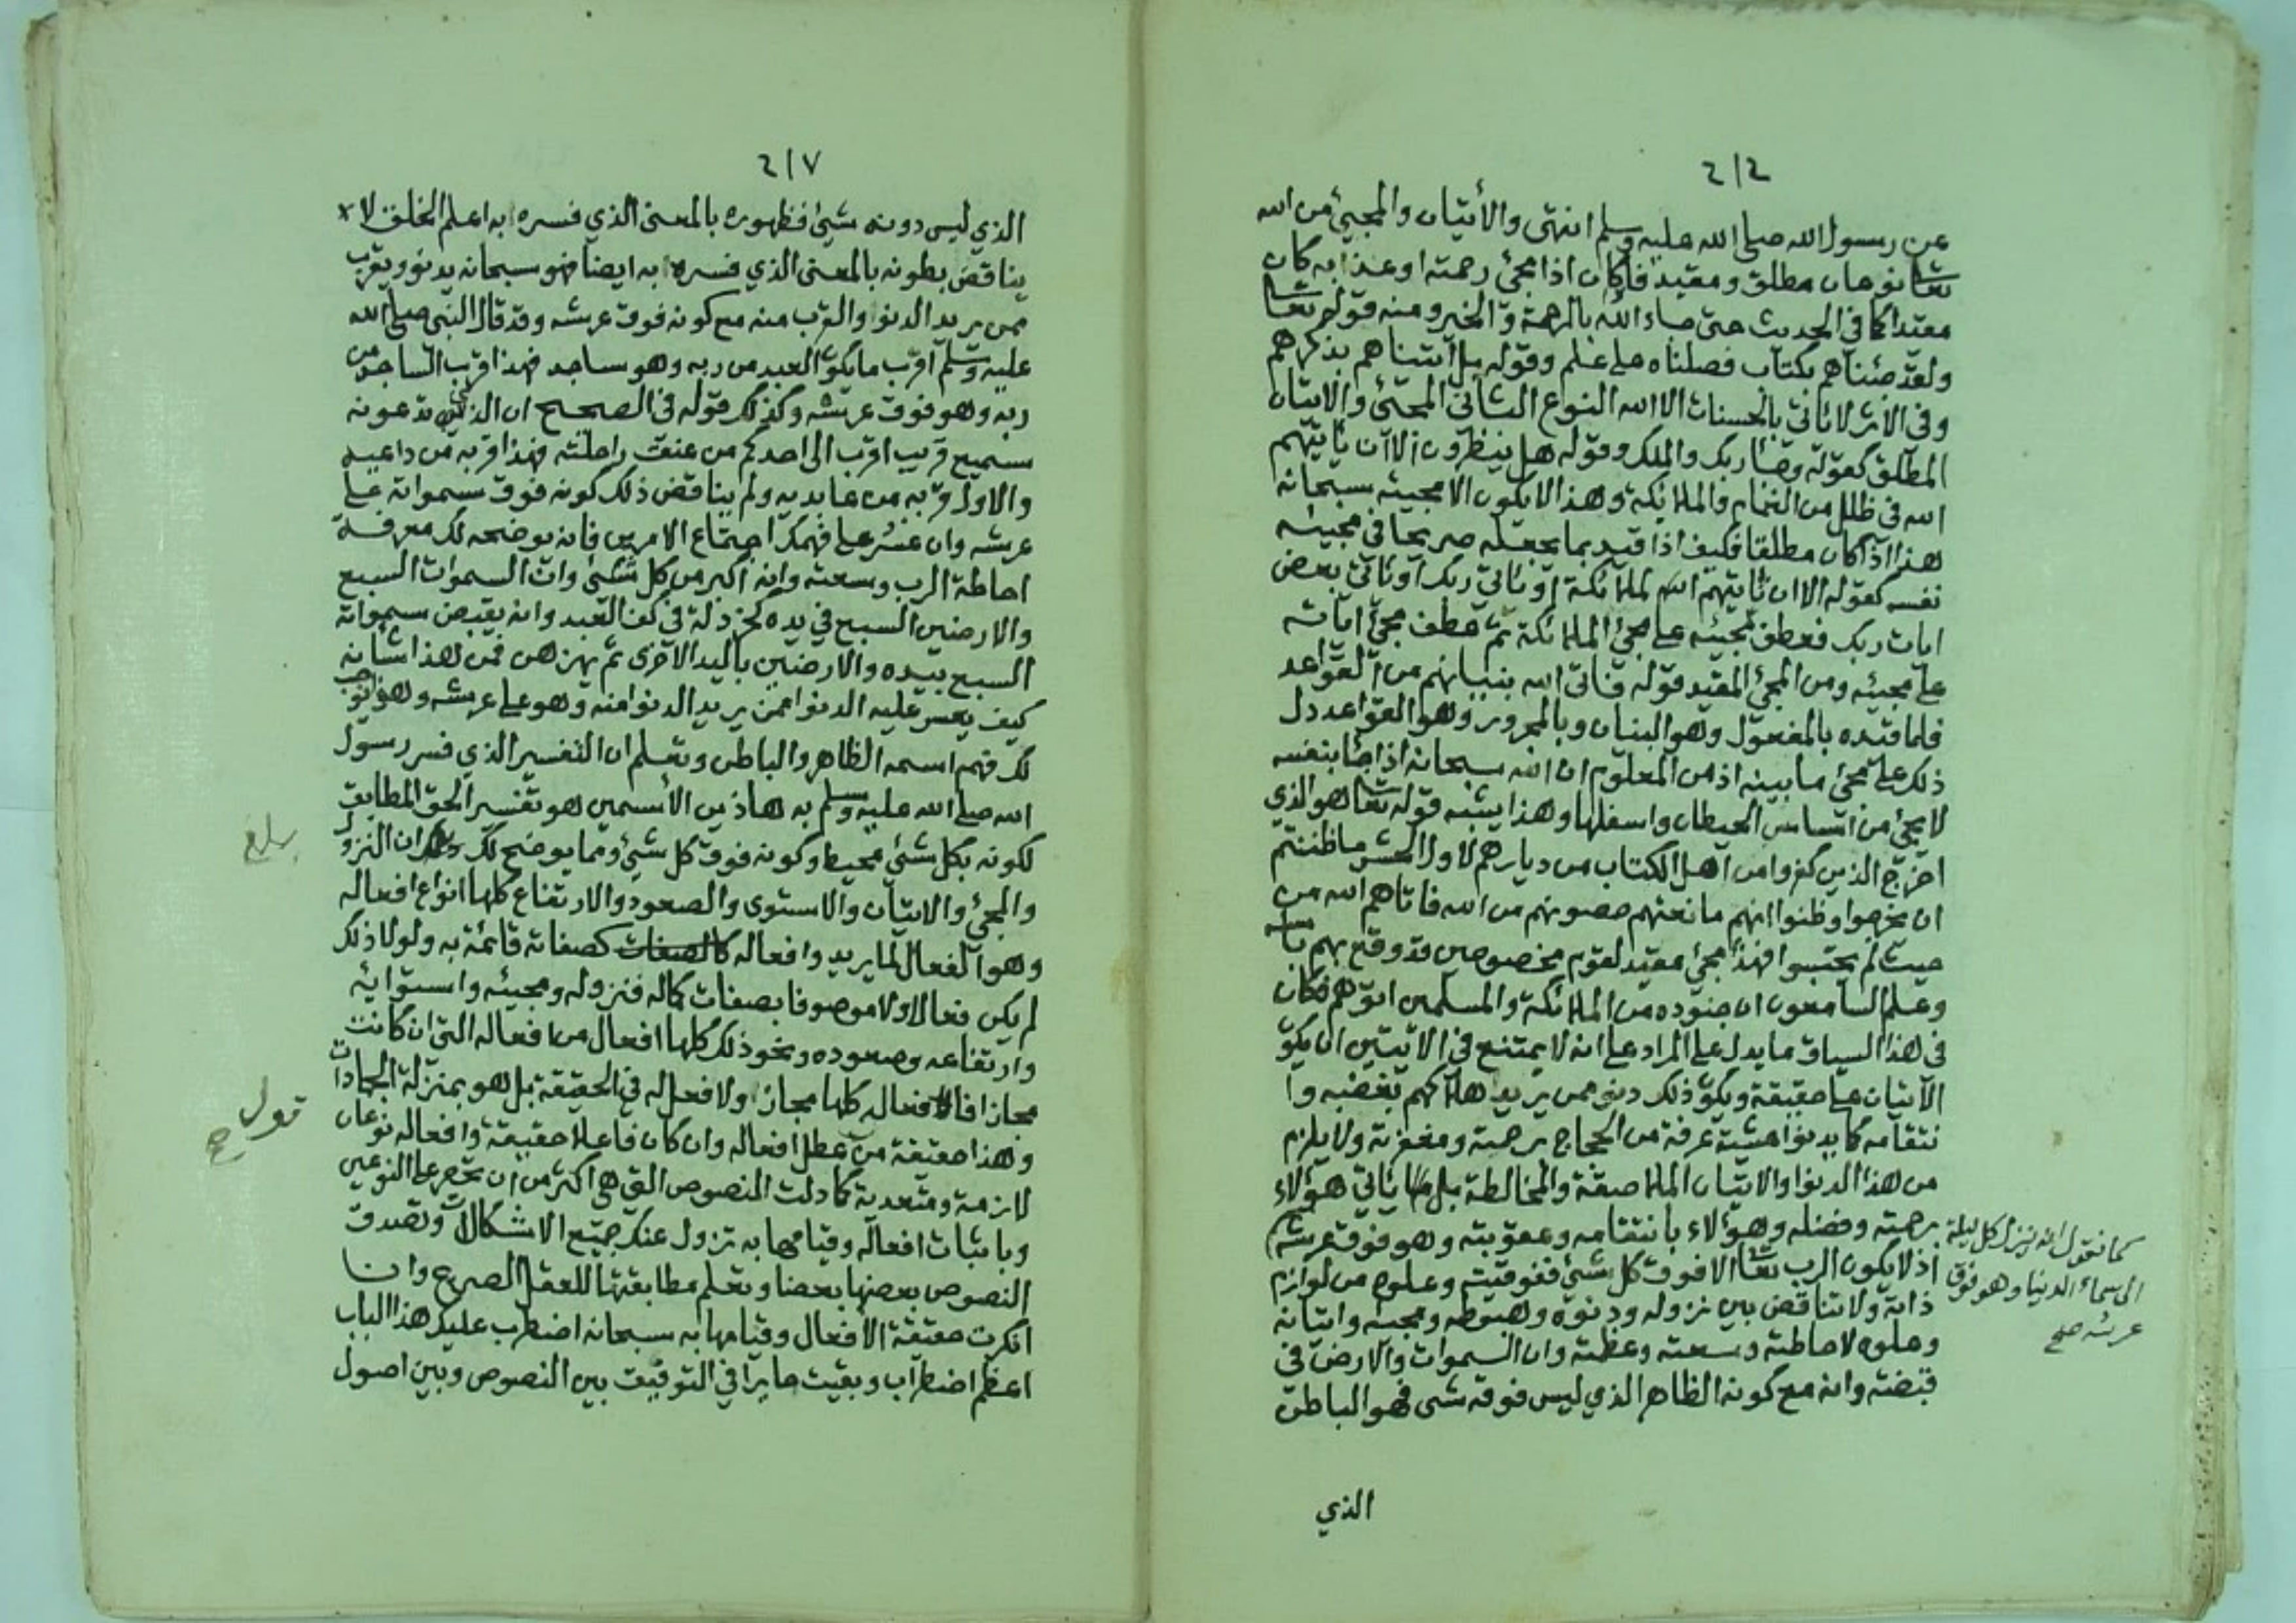 ٢١٤
عن رسول الله صلى الله عليه وسلم انتهى والأتيان والمجيئ من الله
تعا نوعان مطلق ومقيد فاكان اذا مجئ رحمته او عذابه كان
مقيدا كما في الحديث حتى جاء الله بالرحمة والخير ومنه قوله تعا
ولقد جئناهم بكتاب فصلناه على علم وقوله بل اتيناهم بذكرهم
وفي الاثر لا ياتي بالحسنات الا الله النوع الثاني المجئ والاتيان
المطلق كقوله وجاء ربك والملك وقوله هل ينظرون الا ان ياتيهم
الله في ظلل من الغمام والملائكة وهذا لا يكون الا مجيئه سبحانه
هذا اذا كان مطلقا فكيف اذا قيد بما يجعله صريحا في مجيئه
نفسه كقوله الا ان تاتيهم الملائكة او ياتي ربك او ياتي بعض
ايات ربك فعطف مجيئه على مجئ الملائكة ثم عطف مجئ اياته
على مجيئه ومن المجئ المقيد قوله فاتى الله بنيانهم من القواعد
فلما قيده بالمفعول وهو البنيان وبالمجرور وهو القواعد دل
ذلك على مجئ ما بينه اذ من المعلوم ان الله سبحانه اذا جا بنفسه
لا يجئ من اساس الحيطان واسفلها وهذا يشبه قوله تعا هو الذي
اخرج الذين كفروا من اهل الكتاب من ديارهم لاول الحشر ما ظننتم
ان يخرجوا وظنوا انهم مانعتهم حصونهم من الله فاتاهم الله من
حيث لم يحتسبوا فهذا مجئ مقيد لقوم مخصوصين قد وقع بهم باسه
وعلم السامعون ان جنوده من الملائكة والمسلمين اتوهم فكان
في هذا السياق ما يدل على المراد على انه لا يمتنع في الاتيين ان يكو
الاتيان على حقيقة ويكو ذلك دنو ممن يريد هلاكهم بغضبه وا
نتقامه كما يدنو عشية عرفة من الحجاج برحمة ومغفرة ولا يلزم
من هذا الدنو والاتيان الملاصقة والمخالطة بل ياتي هؤلاء
برحمته وفضله وهؤلاء بانتقامه وعقوبته وهو فوق عرشه
اذ لا يكون الرب تعا الا فوق كل شئ ففوقيته وعلوه من لوازم
ذاته ولا تناقض بين نزوله ودنوه وهبوطه ومجيئه واتيانه
وعلوه لاحاطته وسعته وعظمته وان السموات والارض في
قبضته وانه مع كونه الظاهر الذي ليس فوقه شئ فهو الباطن
كما نقول انه ينزل كل ليلة
الى سماء الدنيا وهو فوق
عرشه صح
الذي
٢١٧
الذي ليس دونه شيئ فظهوره بالمعنى الذي فسره به اعلم الخلق لا
يناقض بطونه بالمعنى الذي فسره به ايضا فهو سبحانه يدنو ويقرب
ممن يريد الدنو والقرب منه مع كونه فوق عرشه وقد قال النبي صلى الله
عليه وسلم اقرب ما يكو العبد من ربه وهو ساجد فهذا قرب الساجد من
ربه وهو فوق عرشه وكذلك قوله في الصحيح ان الذي تدعونه
سميع قريب اقرب الى احدكم من عنق راحلته فهذا قربه من داعيه
والاول قربه من عابديه ولم يناقض ذلك كونه فوق سمواته على
عرشه وان عسر على فهمك اجتماع الامرين فانه يوضحه لك معرفة
احاطة الرب وسعته وانه اكبر من كل شئ وان السموات السبع
والارضين السبع في يده كخردلة في كف العبد وانه يقبض سمواته
السبع بيده والارضين باليد الاخرى ثم يهزهن فمن هذا شانه
كيف يعسر عليه الدنو ممن يريد الدنو منه وهو على عرشه وهو يوجب
لك فهم اسمه الظاهر والباطن وتعلم ان التفسير الذي فسر رسول
الله صلى الله عليه وسلم به هاذين الأسمين هو تفسير الحق المطابق
لكونه بكل شئ محيط وكونه فوق كل شئ ومما يوضح لك ان النزول
والمجئ والاتيان والاستوى والصعود والارتفاع كلها انواع افعاله
وهو الفعال لما يريد وافعاله كالصفات كصفاته قائمة به ولولا ذلك
لم يكن فعالا ولا موصوفا بصفات كماله فنزوله ومجيئه واستوائه
وارتفاعه وصعوده ونحو ذلك كلها افعال من افعاله التي ان كانت
مجازا فافعاله كلها مجاز ولا فعل له في الحقيقة بل هو بمنزلة الجمادات
وهذا حقيقة من عطل افعاله وان كان فاعلا حقيقة وافعاله نوعان
لازمة ومتعدية كما دلت النصوص التي هي اكثر من ان تحصر على النوعين
وباثبات افعاله وقيامها به تزول عنك جميع الاشكالات وتصدق
النصوص بعضها بعضا وتعلم مطابقتها للعقل الصريح وان
انكرت حقيقة الافعال وقيامها به سبحانه اضطرب عليك هذا الباب
اعظم اضطراب وبقيت حايرا في التوفيق بين النصوص وبين اصول
بلغ
قول
صح